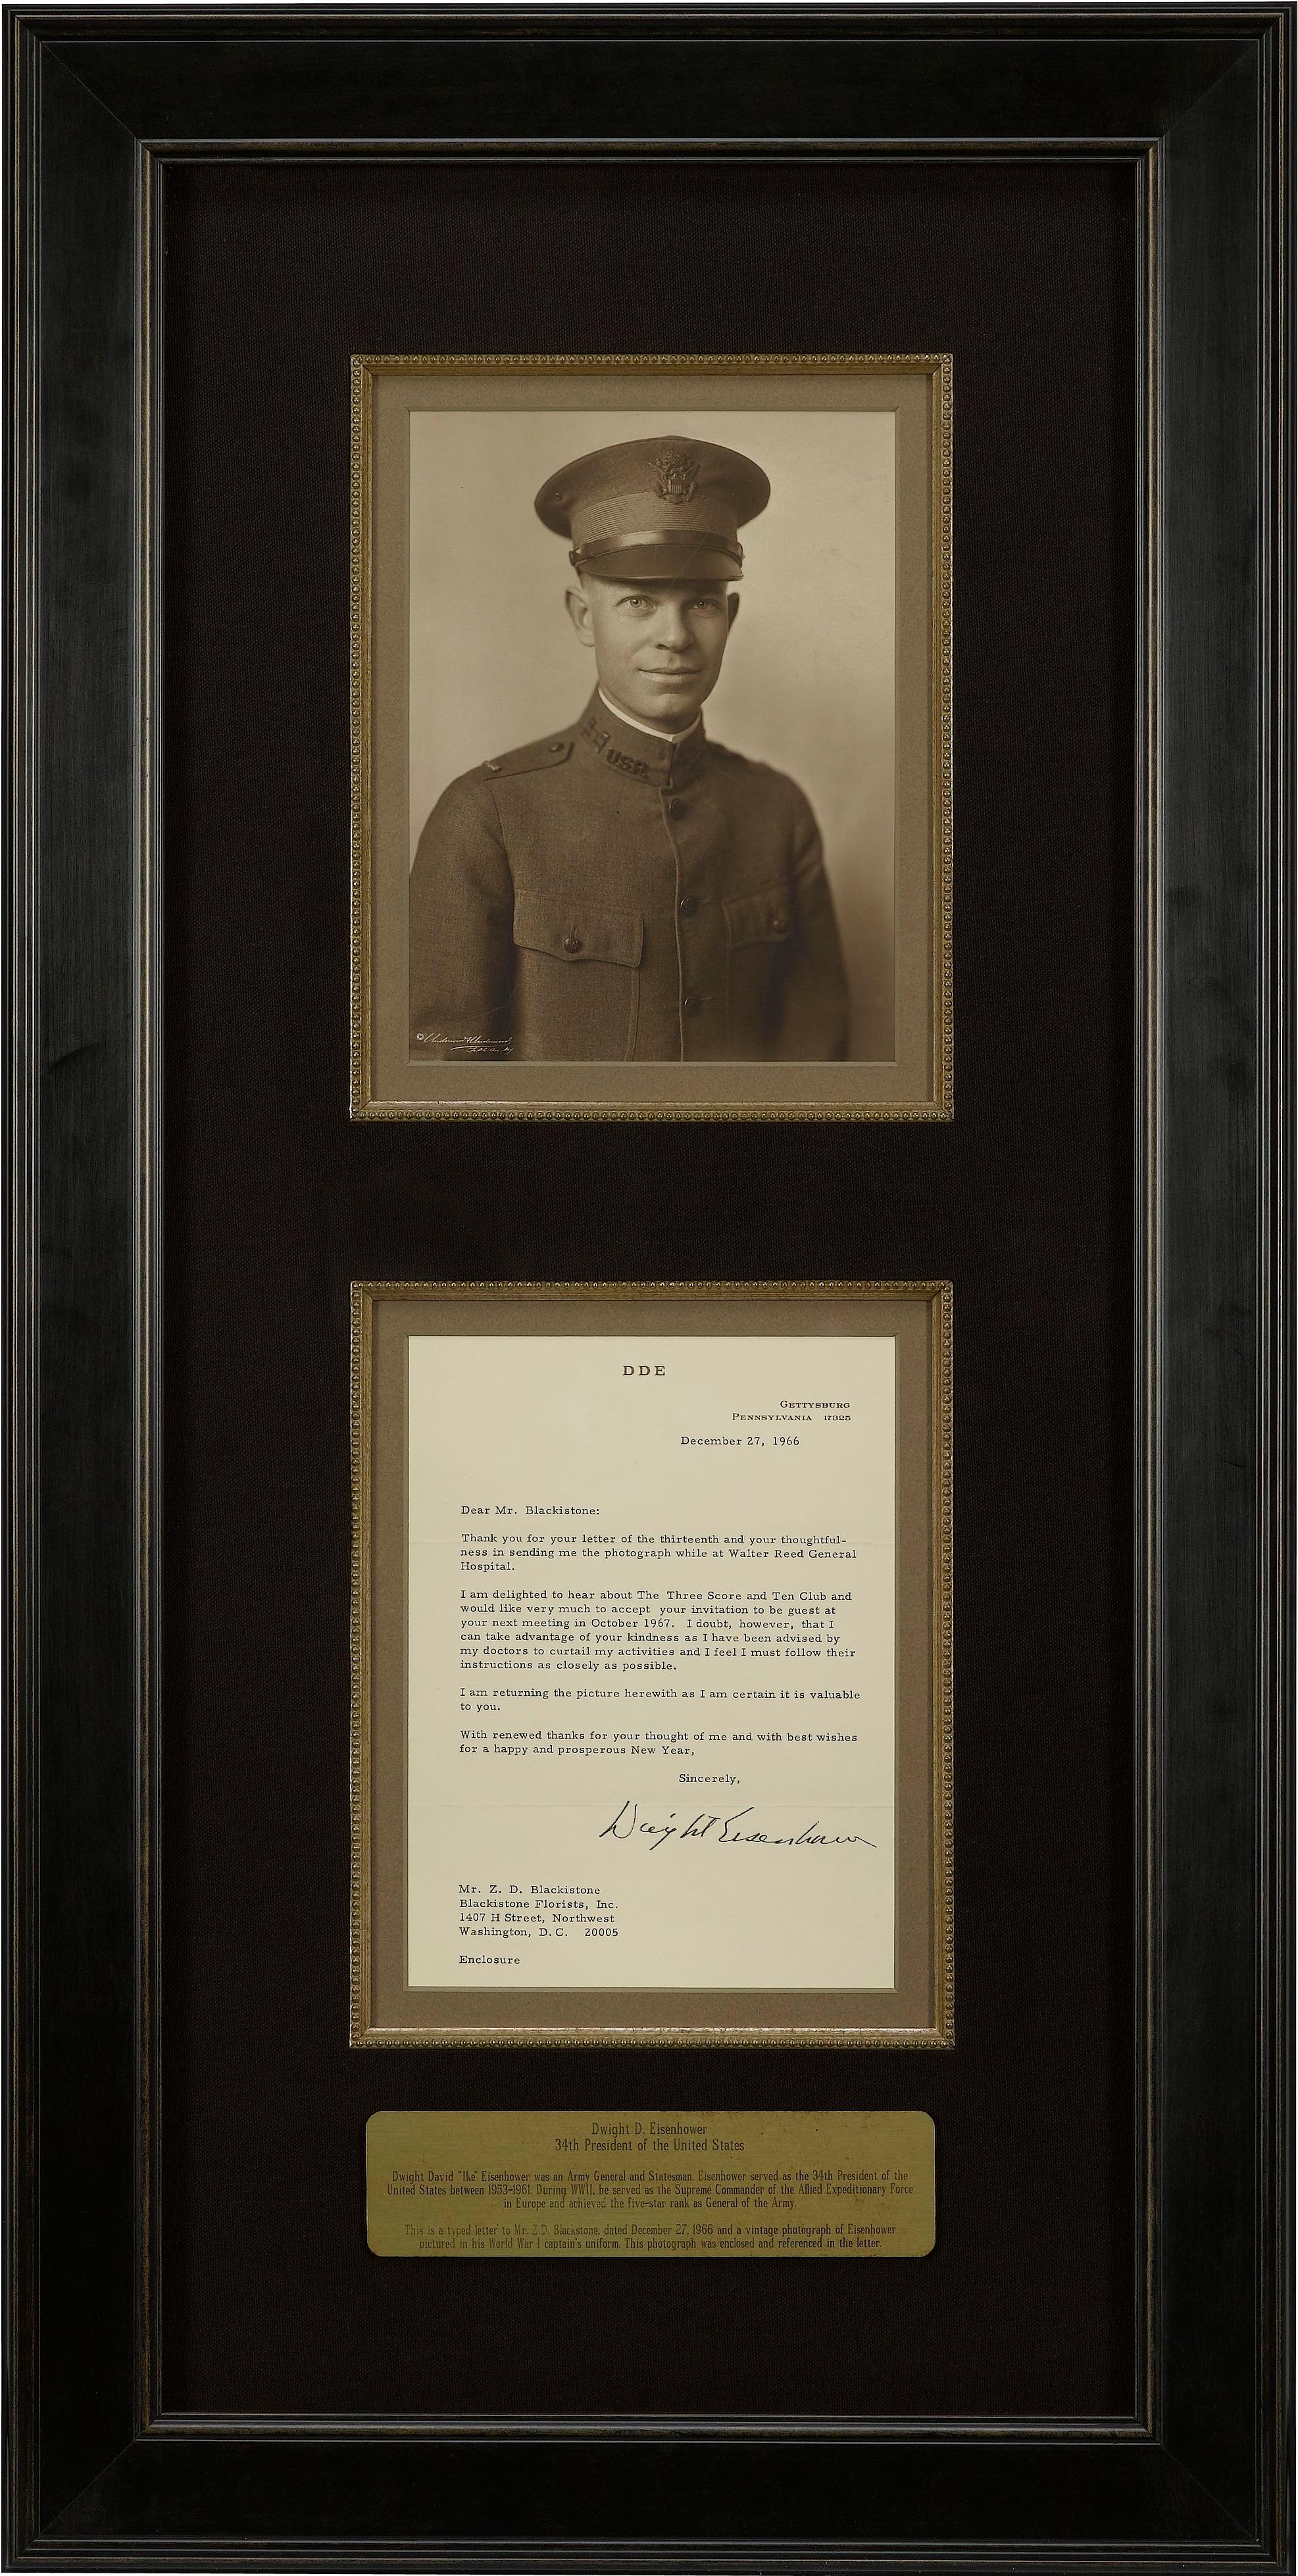 USR
© Underwood & Underwood
DDE
GETTYSBURG
PENNSYLVANIA 17325
December 27, 1966
Dear Mr. Blackistone:
Thank you for your letter of the thirteenth and your thoughtful-
ness in sending me the photograph while at Walter Reed General
Hospital.
I am delighted to hear about The Three Score and Ten Club and
would like very much to accept your invitation to be guest at
your next meeting in October 1967. I doubt, however, that I
can take advantage of your kindness as I have been advised by
my doctors to curtail my activities and I feel I must follow their
instructions as closely as possible.
I am returning the picture herewith as I am certain it is valuable
to you.
With renewed thanks for your thought of me and with best wishes
for a happy and prosperous New Year,
Sincerely,
Dwight Eisenhower
Mr. Z. D. Blackistone
Blackistone Florists, Inc.
1407 H Street, Northwest
Washington, D.C. 20005
Enclosure
Dwight D. Eisenhower
34th President of the United States
Dwight David "Ike" Eisenhower was an Army General and Statesman. Eisenhower served as the 34th President of the
United States between 1953-1961. During WWII, he served as the Supreme Commander of the Allied Expeditionary Force
in Europe and achieved the five-star rank as General of the Army.
This is a typed letter to Mr. Z.D. Blackstone, dated December 27, 1966 and a vintage photograph of Eisenhower
pictured in his World War I captain's uniform. This photograph was enclosed and referenced in the letter.